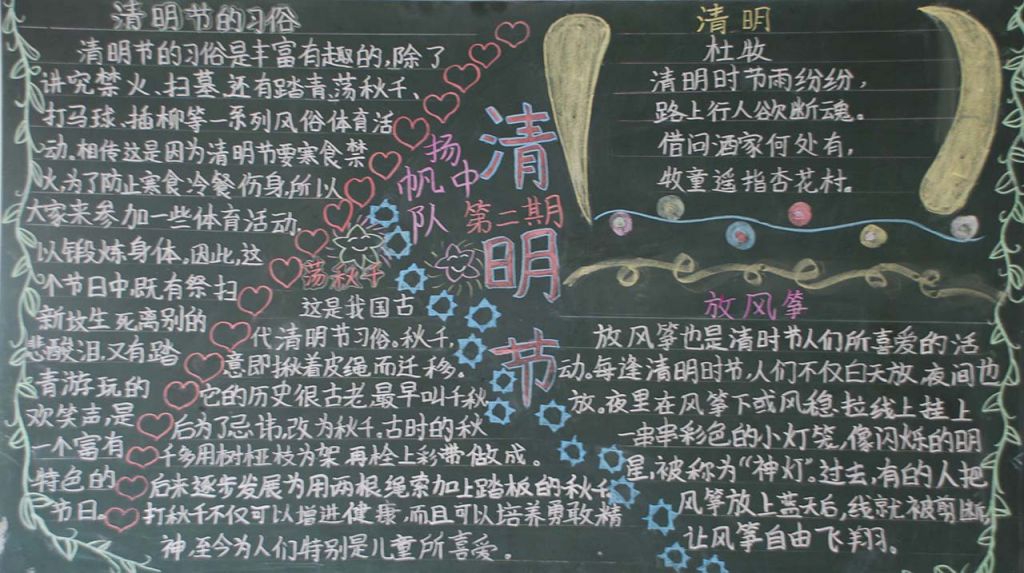 清明节的习俗
清明节的习俗是丰富有趣的,除了
讲究禁火、扫墓,还有踏青、荡秋千、
打马球、插柳等一系列风俗体育活
动。相传这是因为清明节要寒食禁
火,为了防止寒食冷餐伤身,所以
大家来参加一些体育活动,
以锻炼身体,因此,这
个节日中,既有祭扫
新坟生死离别的
悲酸泪,又有踏
青游玩的
欢笑声,是
一个富有
特色的
节日。
荡秋千
这是我国古
代清明节习俗。秋千,
意即揪着皮绳而迁移。
它的历史很古老,最早叫千秋
后为了忌讳,改为秋千,古时的秋
千多用树桠枝为架,再栓上彩带做成。
后来逐步发展为用两根绳索加上踏板的秋千
打秋千不仅可以增进健康,而且可以培养勇敢精
神,至今为人们特别是儿童所喜爱。
清明节
扬帆中队
第二期
清明
杜牧
清明时节雨纷纷,
路上行人欲断魂。
借问酒家何处有,
牧童遥指杏花村。
放风筝
放风筝也是清时节人们所喜爱的活
动。每逢清明时节,人们不仅白天放,夜间也
放。夜里在风筝下或风稳拉线上挂上
一串串彩色的小灯笼,像闪烁的明
星,被称为“神灯”。过去,有的人把
风筝放上蓝天后,线就被剪断,
让风筝自由飞翔。